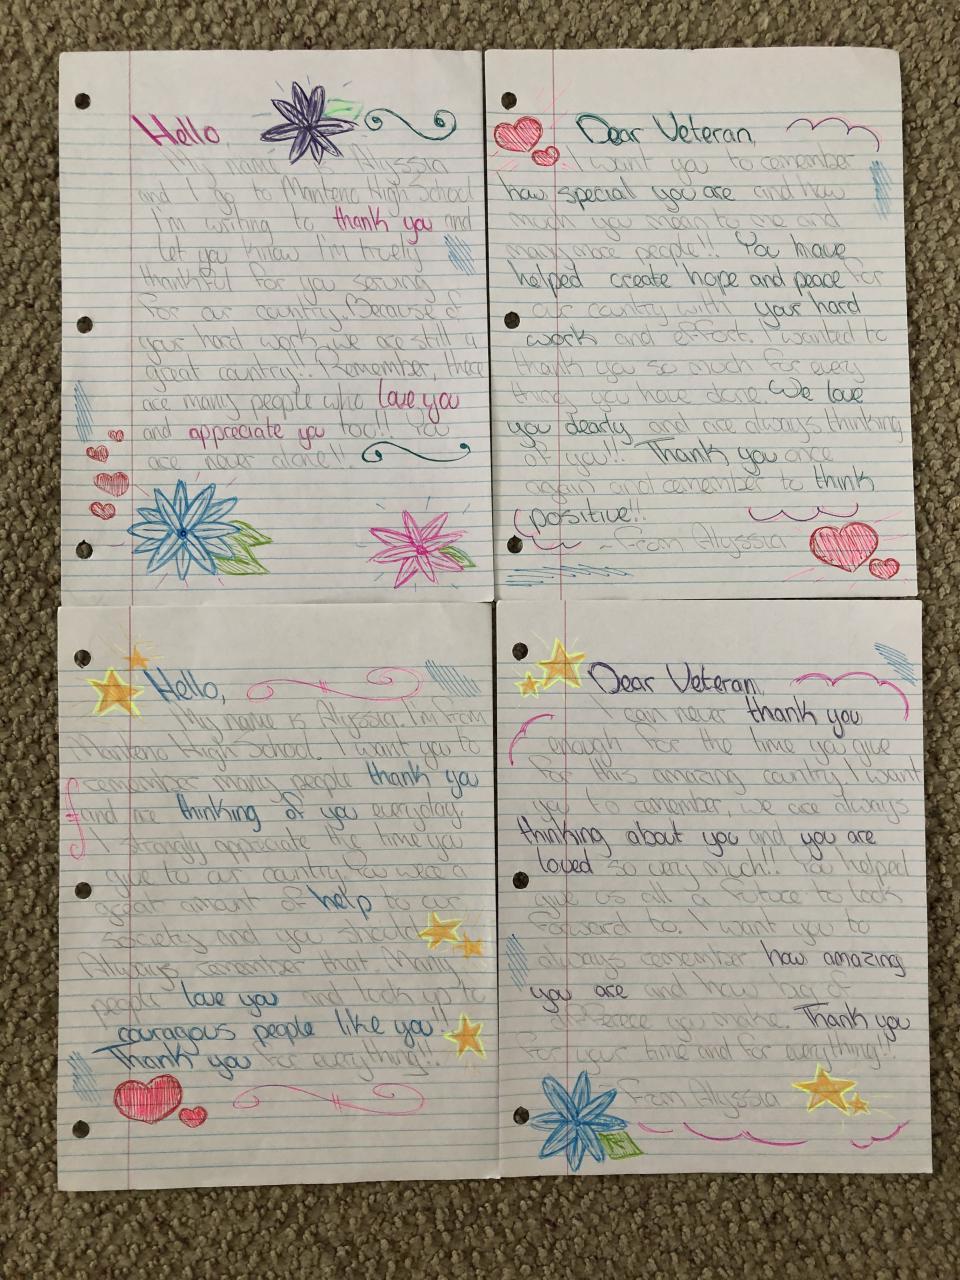 Hello,
My name is Alyssia
and I go to Manteno High School
I'm writing to thank you and
let you know I'm truely
thankful for you serving
for our country. Because of
your hard work, we are still a
great country!! Remember, there
are many people who love you
and appreciate you too!! You
are never alone!!
Dear Veteran,
I want you to remember
how special you are and how
much you mean to me and
many more people!! You have
helped create hope and peace for
our country with your hard
work and effort. I wanted to
thank you so much for every
thing you have done. We love
you dearly and are always thinking
of you!!! Thank you once
again and remember to think
positive!!
-From Alyssia
Hello,
My name is Alyssia. I'm from
Manteno High School. I want you to
remember many people thank you
and are thinking of you everyday.
I strongly appriciate the time you
give to our country. You were a
great amount of help to our
society and you should
Always remember that. Many
people love you and look up to
couragous people like you!!
Thank you for everything!!
Dear Veteran,
I can never thank you
enough for the time you give
for this amazing country. I want
you to remember, we are always
thinking about you and you are
loved so very much!! You helped
give us all a future to look
forward to. I want you to
always remember how amazing
you are and how big of
a you make. Thank you
for your time and for everything!!
-From Alyssia